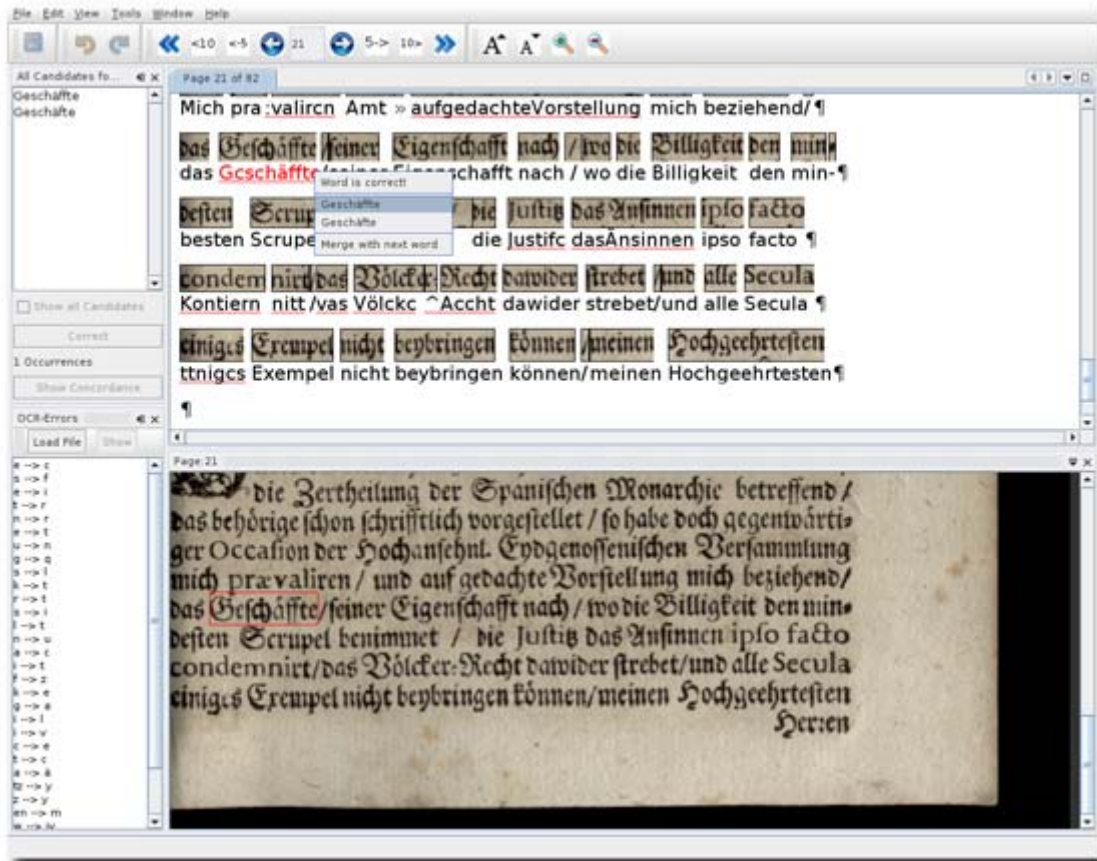 File Edit View Tools Window Help
<10 <-5 21 5-> 10> A A
All Candidates fo...
Geschäffte
Geschäfte
Show all Candidates
Correct
1 Occurrences
Show Concordance
OCR-Errors
Load File Show
e --> c
s --> f
e --> i
t --> r
n --> r
e --> t
u --> n
g --> q
s --> l
k --> t
r --> t
s --> i
l --> t
n --> u
a --> c
i --> t
f --> z
k --> e
g --> a
i --> l
i --> v
c --> e
t --> c
a --> ä
tz --> y
z --> y
en --> m
Page 21 of 82
Mich pra ;valircn Amt » aufgedachteVorstellung mich beziehend/ ¶
das Geſchäffte /ſeiner Eigenſchafft nach / wo die Billigkeit den min⸗
das Gcschäffte/seiner Eigenschafft nach / wo die Billigkeit den min-¶
Word is correct!
Geschäffte
Geschäfte
Merge with next word
deſten Scrup / die Juſtitz das Anſinnen ipſo facto
besten Scrupe die Justifc dasÄnsinnen ipso facto ¶
condem nirt/ das Völcker⸗Recht dawider ſtrebet /und alle Secula
Kontiern nitt /vas Völckc ^Accht dawider strebet/und alle Secula ¶
einiges Exempel nicht beybringen können /meinen Hochgeehrteſten
ttnigcs Exempel nicht beybringen können/meinen Hochgeehrtesten¶
¶
Page: 21
die Zertheilung der Spaniſchen Monarchie betreffend /
das behörige ſchon ſchrifftlich vorgeſtellet / ſo habe doch gegenwärti⸗
ger Occaſion der Hochanſehnl. Eydgenoſſeniſchen Verſammlung
mich prævaliren / und auf gedachte Vorſtellung mich beziehend/
das Geſchäffte/ſeiner Eigenſchafft nach / wo die Billigkeit den min⸗
deſten Scrupel benimmet / die Juſtitz das Anſinnen ipſo facto
condemnirt/das Völcker⸗Recht dawider ſtrebet/und alle Secula
einiges Exempel nicht beybringen können/meinen Hochgeehrteſten
Herꝛen